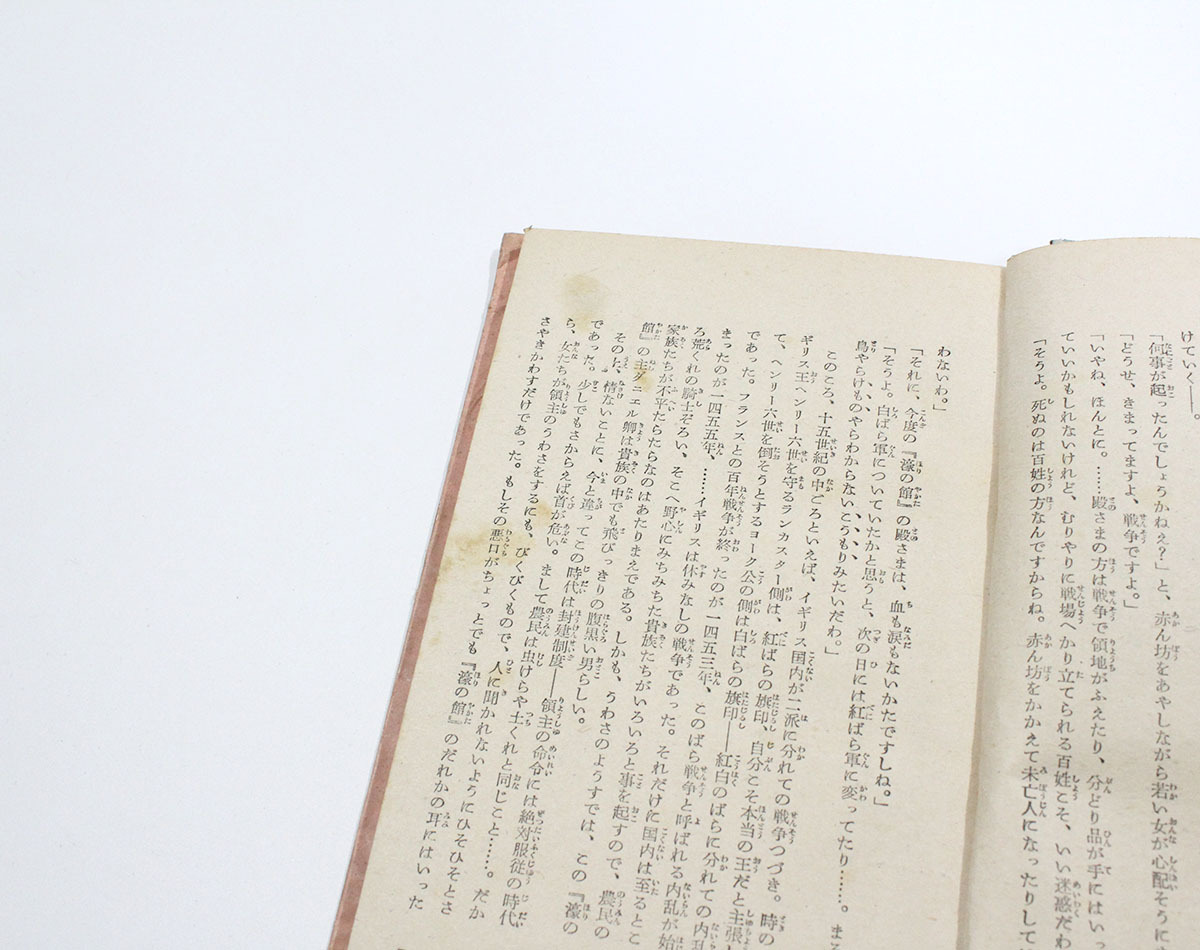 けていく――。
「何事が起ったんでしょうかねえ？」と、赤ん坊をあやしながら若い女が心配そうに
「どうせ、きまってますよ、戦争ですよ。」
「いやね、ほんとに。……殿さまの方は戦争で領地がふえたり、分どり品が手にはい
ていいかもしれないけれど、むりやりに戦場へかり立てられる百姓こそ、いい迷惑だわ
「そうよ。死ぬのは百姓の方なんですからね。赤ん坊をかかえて未亡人になったりして
わないわ。」
「それに、今度の『濠の館』の殿さまは、血も涙もないかたですしね。」
「そうよ。白ばら軍についていたかと思うと、次の日には紅ばら軍に変ってたり……。まる
鳥やらけものやらわからないこうもりみたいだわ。」
このころ、十五世紀の中ごろといえば、イギリス国内が二派に分れての戦争つづき。時の
ギリス王ヘンリー六世を守るランカスター側は、紅ばらの旗印、自分こそ本当の王だと主張
て、ヘンリー六世を倒そうとするヨーク公の側は白ばらの旗印――紅白のばらに分れての内乱
であった。フランスとの百年戦争が終ったのが一四五三年、このばら戦争と呼ばれる内乱が始
まったのが一四五五年、……イギリスは休みなしの戦争であった。それだけに国内は至るとこ
ろ荒くれの騎士ぞろい、そこへ野心にみちみちた貴族たちがいろいろと事を起すので、農民の
家族たちが不平たらたらなのはあたりまえである。しかも、うわさのようすでは、この『濠の
館』の主ダニエル卿は貴族の中でも飛びっきりの腹黒い男らしい。
その上、情ないことに、今と違ってこの時代は封建制度――領主の命令には絶対服従の時代
であった。少しでもさからえば首が危い。まして農民は虫けらや土くれと同じこと……。だか
ら、女たちが領主のうわさをするにも、びくびくもので、人に聞かれないようにひそひそとさ
さやきかわすだけであった。もしその悪口がちょっとでも『濠の館』のだれかの耳にはいった